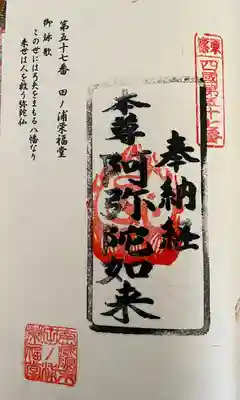 東霊
四國第五十七番
奉納経
本尊阿弥陀如来
第五十七番　田ノ浦栄福堂
御詠歌
この世には弓矢をまもる八幡なり
来世は人を救う弥陀仏